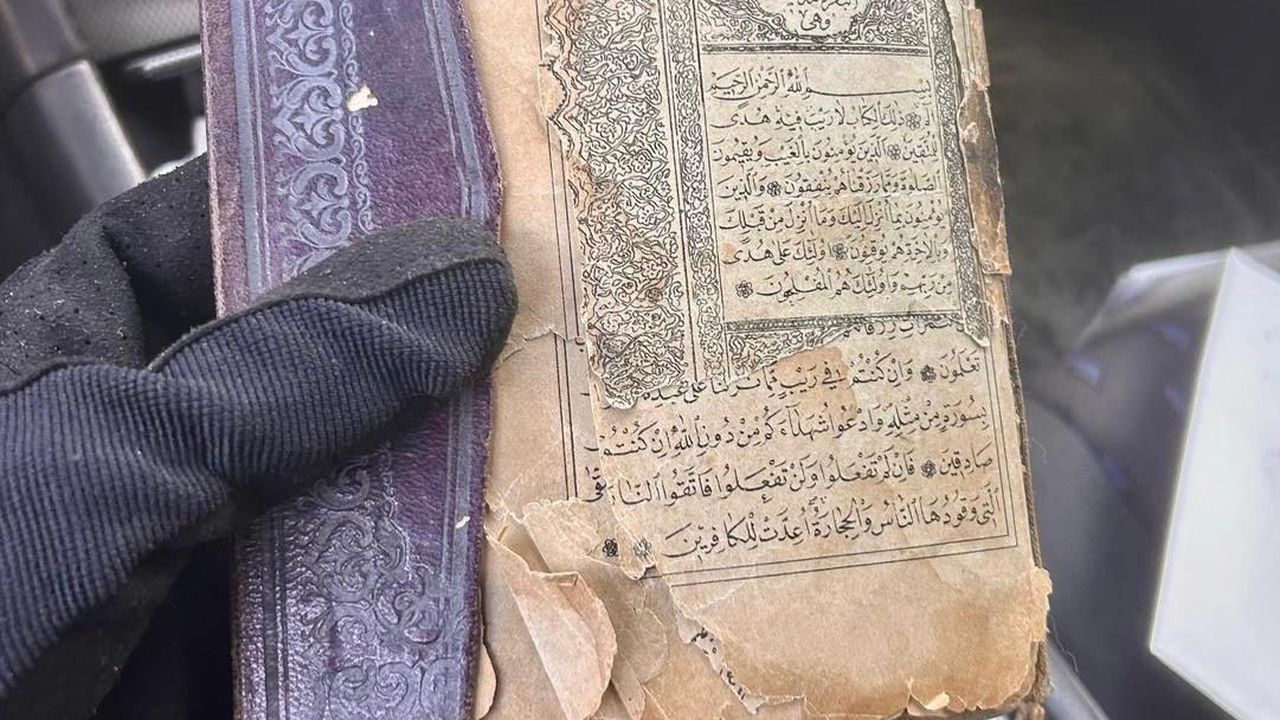 وهي
بسم الله الرحمن الرحيم
الم ذلك الكتاب لا ريب فيه هدى
للمتقين الذين يؤمنون بالغيب ويقيمون
الصلوة ومما رزقناهم ينفقون والذين
يؤمنون بما أنزل إليك وما أنزل من قبلك
وبالآخرة هم يوقنون اولئك على هدى
من ربهم واولئك هم المفلحون
تعلمون وان كنتم في ريب مما نزلنا على عبدنا
بسورة من مثله وادعوا شهداءكم من دون الله ان كنتم
صادقين فان لم تفعلوا ولن تفعلوا فاتقوا النار
التي وقودها الناس والحجارة أعدت للكافرين